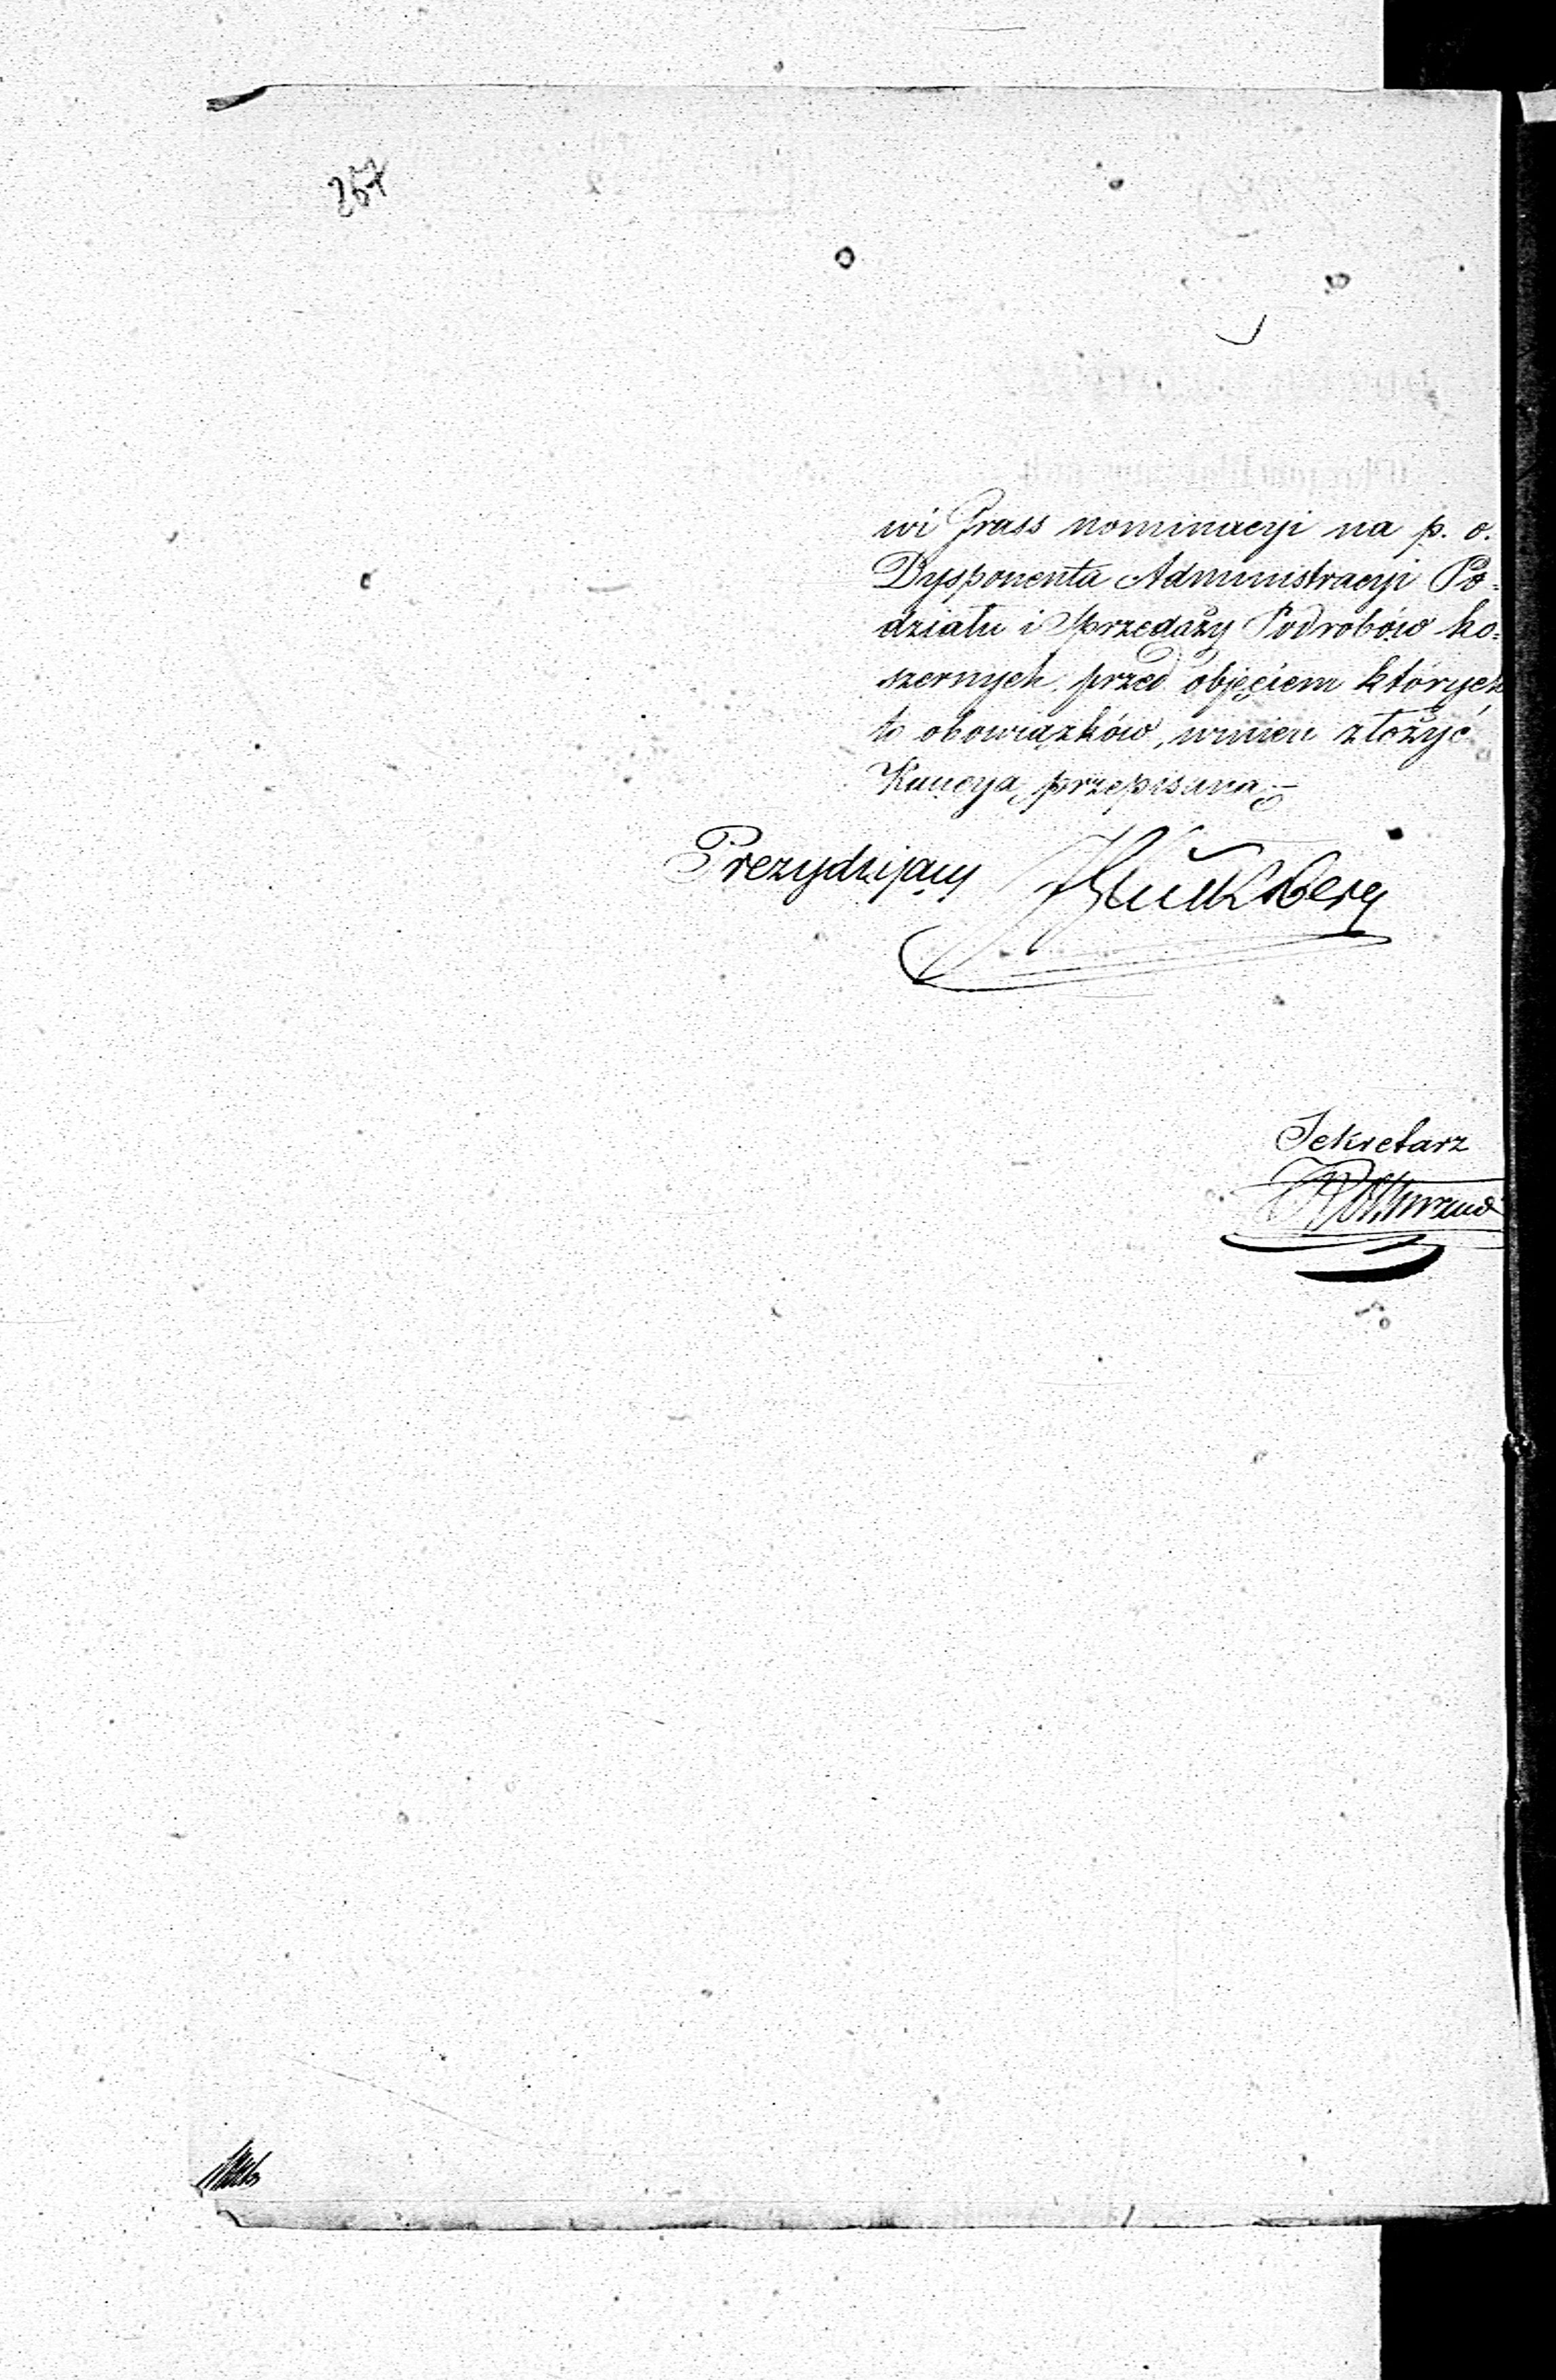 257
wi Grass nominacyi na p. o.
Dysponenta Administracyi Po=
działu i Sprzedaży Podrobów ko=
szernych, przed objęciem których
to obowiązków, winien złożyć
Kaucyą przepisaną.
Prezydujący
Sekretarz